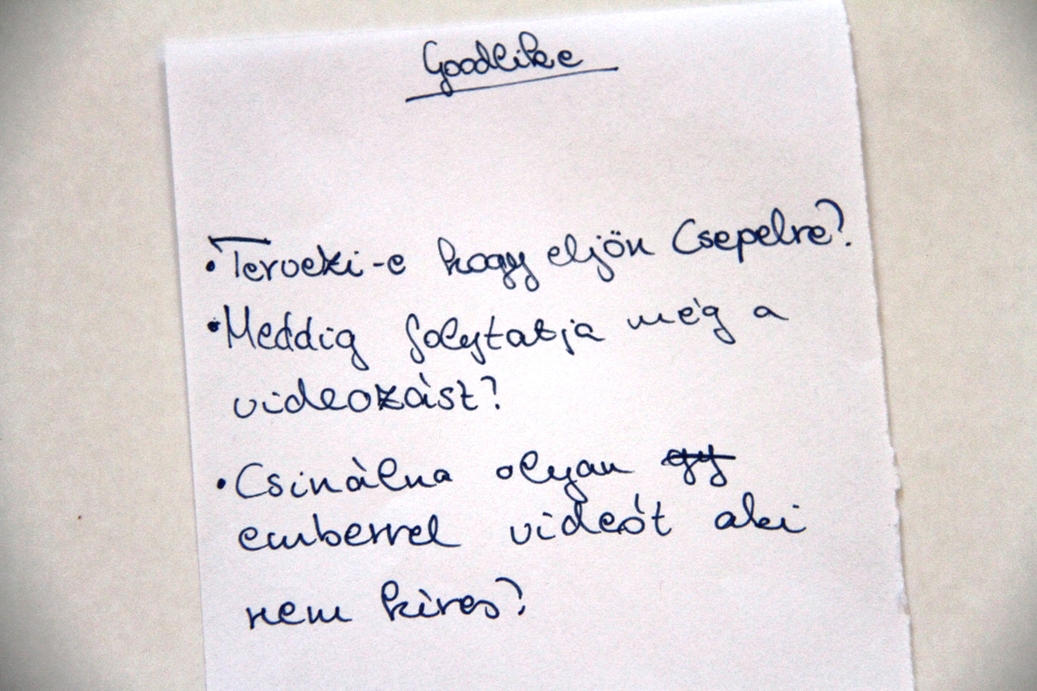 Goodlike
• Tervezi-e hogy eljön Csepelre?
• Meddig folytatja még a
videozást?
• Csinálna olyan
emberrel videót aki
nem híres?